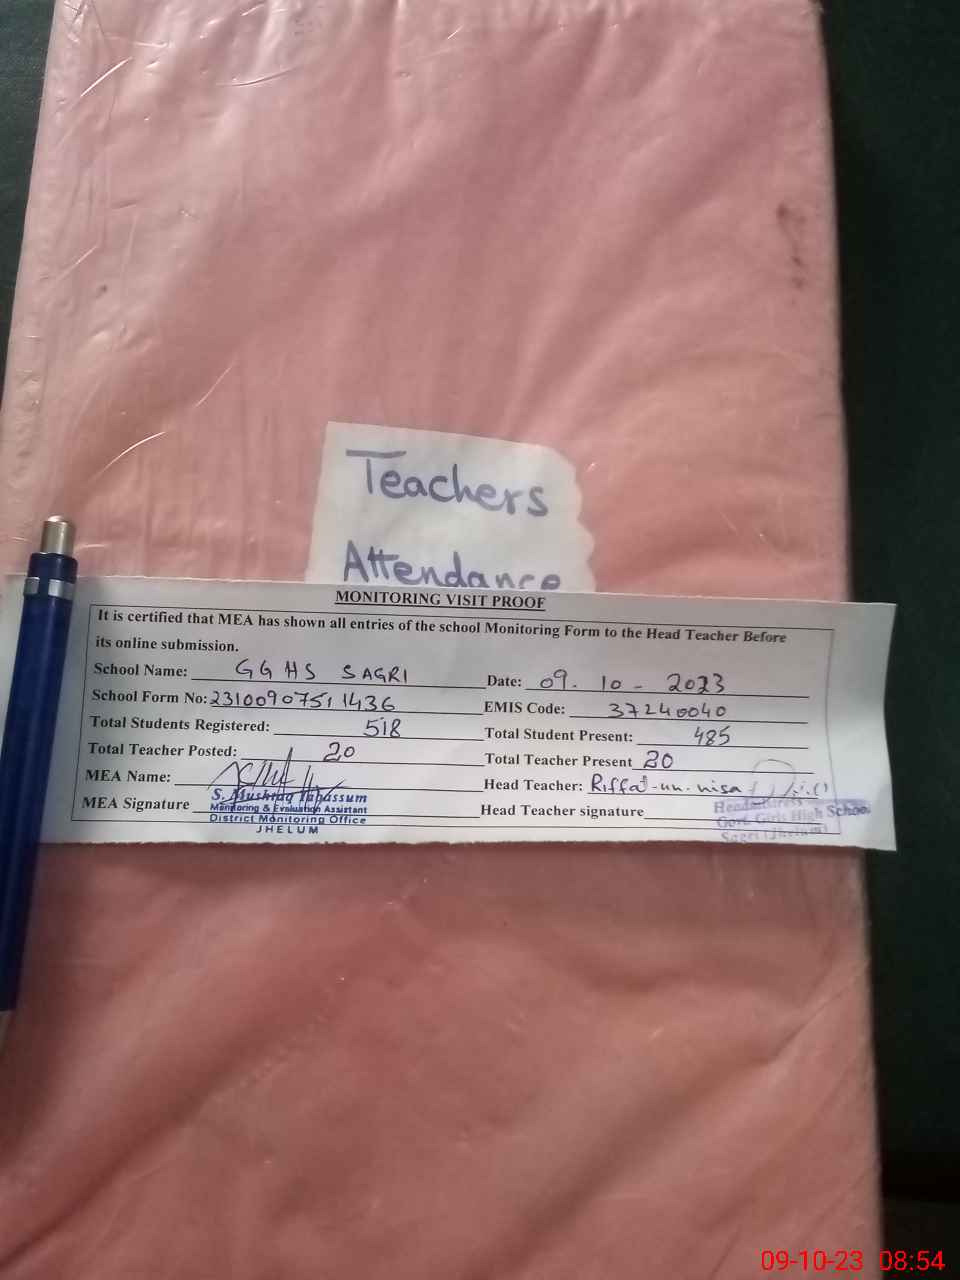 Teachers
Attendance
MONITORING VISIT PROOF
It is certified that MEA has shown all entries of the school Monitoring Form to the Head Teacher Before
its online submission.
School Name: GGHS SAGRI Date: 09-10-2023
School Form No: 2310090751 1436 EMIS Code: 37240040
Total Students Registered: 518 Total Student Present: 485
Total Teacher Posted: 20 Total Teacher Present 20
MEA Name: Head Teacher: Riffat-un-nisa
MEA Signature Head Teacher signature
S. Mushtaq Tabassum
Monitoring & Evaluation Assistant
District Monitoring Office
JHELUM
Headmistress
Govt. Girls High School
Sagri (Jhelum)
09-10-23 08:54